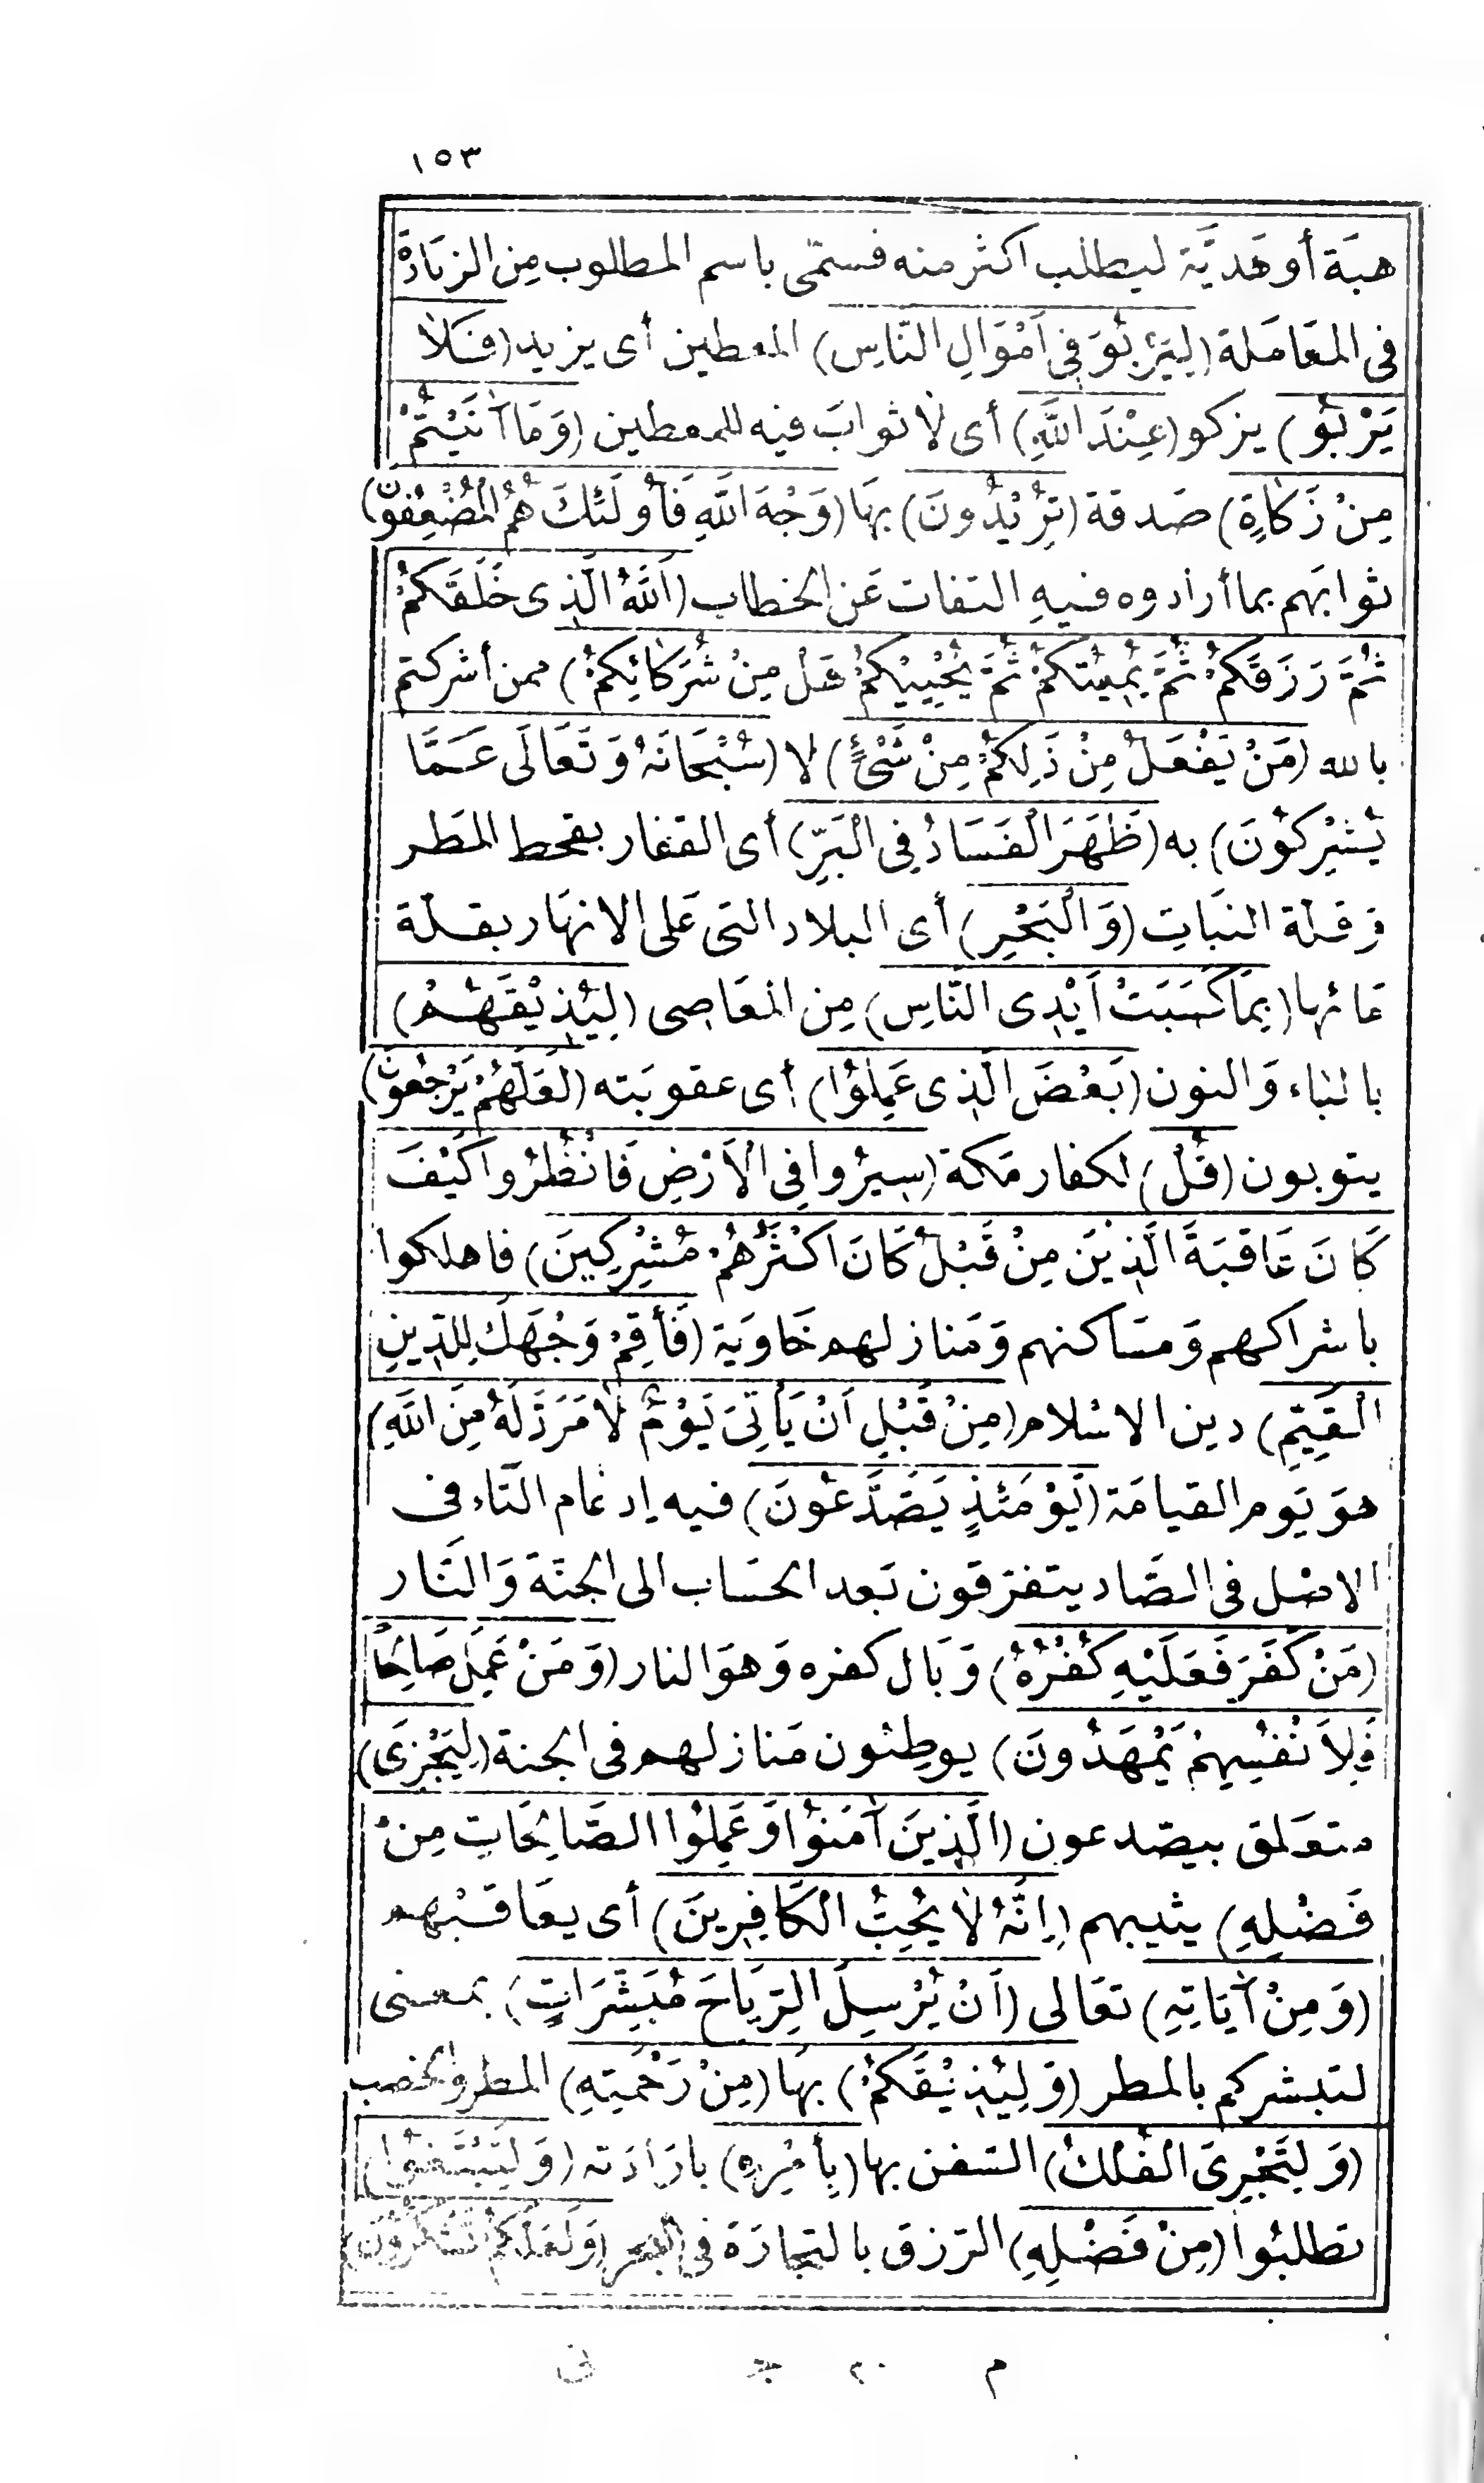 ١٥٣
هبَة أو هَديَّة ليطلب اكثر منه فسمّى باسم المطلوب مِن الزيَادة
فى المعَامَلة (لِيَرْبُوَ فِى اَمْوَالِ النَّاسِ) المعطين أى يزيد (فَلَا
يَرْبُو) يزكو (عِنْدَ اللَّهِ) أى لا ثوابَ فيه للمعطين (وَمَا اٰتَيْتُمْ
مِنْ زَكَاةٍ) صَدقة (تُرِيْدُونَ) بهَا (وَجْهَ اللَّهِ فَأُولَئِكَ هُمُ الْمُضْعِفُونَ)
ثوابهَم بما أرادوه فيهِ التفات عَن الخطاب (اَللَّهُ الَّذِى خَلَقَكُمْ
ثُمَّ رَزَقَكُمْ ثُمَّ يُمِيْتُكُمْ ثُمَّ يُحْيِيْكُمْ هَلْ مِنْ شُرَكَائِكُمْ) ممن أشركتم
بالله (مَنْ يَفْعَلُ مِنْ ذَلِكُمْ مِنْ شَئٍْ) لا (سُبْحَانَهُ وَتَعَالَى عَمَّا
يُشْرِكُوْنَ) به (ظَهَرَ الْفَسَادُ فِى الْبَرِّ) أى القفار بقحط المَطر
وَقلة النبَاتِ (وَالْبَحْرِ) أى البلاد التى عَلى الانهَار بقلة
مَائها (بِمَا كَسَبَتْ اَيْدِى النَّاسِ) مِن المعَاصى (لِيُذِيْقَهُمْ)
بالياء وَالنون (بَعْضَ الَّذِى عَمِلُوْا) أى عقوبَته (لَعَلَّهُمْ يَرْجِعُونَ)
يتوبون (قُلْ) لكفار مَكة (سِيْرُوا فِى الْاَرْضِ فَانْظُرُوا كَيْفَ
كَانَ عَاقبَةُ الَّذِيْنَ مِنْ قَبْلُ كَانَ اَكْثَرُهُمْ مُشْرِكِينَ) فاهلكوا
باشراكهم وَمسَاكنهم وَمَنازلهم خَاوَيَة (فَأَقِمْ وَجْهَكَ لِلدِّينِ
الْقَيِّمِ) دين الاسْلام (مِنْ قَبْلِ اَنْ يَأْتِىَ يَوْمٌ لَا مَرَدَّ لَهُ مِنَ اللَّهِ)
هوَ يَوم القيامَة (يَوْمَئِذٍ يَصَّدَّعُوْنَ) فيه إدغام التّاء فى
الاصْل فى الصَّاد يتفرَقون بَعد الحسَاب الى الجنَة وَالنَار
(مَنْ كَفَرَ فَعَلَيْهِ كُفْرُهُ) وَبَال كفره وَهوَ النار (وَمَنْ عَمِلَ صَالِحًا
فَلِاَنْفُسِهِمْ يَمْهَدُونَ) يوطِئون مَنازلهم فى الجنة (لِيَجْزِىَ)
متعَلق بيصّدعون (الَّذِينَ اٰمَنُوْا وَعَمِلُوْا الصَّالِحَاتِ مِنْ
فَضْلِهِ) يثيبهم (إِنَّهُ لَا يُحِبُّ الْكَافِرِينَ) أى يعَاقبْهم
(وَمِنْ اٰيَاتِهِ) تعَالى (اَنْ يُرْسِلَ الرِّيَاحَ مُبَشِّرَاتٍ) بمعنى
لتبشركم بالمطر (وَلِيُذِيْقَكُمْ) بهَا (مِنْ رَحْمَتِهِ) المطر والخصب
(وَلِتَجْرِىَ الْفُلْكُ) السّفن بها (بِأَمْرِهِ) بارَادَته (وَلِتَبْتَغُوْا)
تطلبُوا (مِنْ فَضْلِهِ) الرّزق بالتجارَة فى البحر (وَلَعَلَّكُمْ تَشْكُرُوْنَ)
م ٢٠ جـ نى